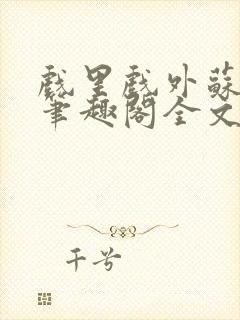 戲里戲外蘇
筆趣閣全文
千兮